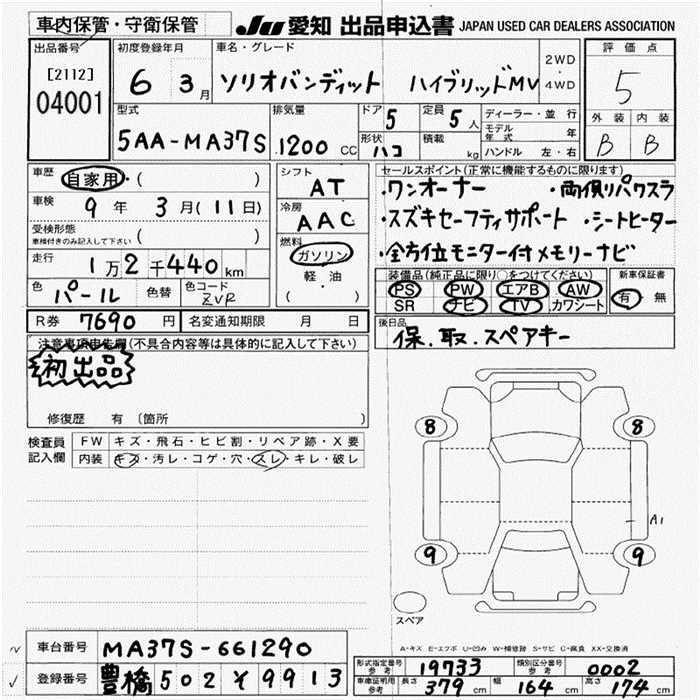 車内保管・守衛保管
JU 愛知 出品申込書 JAPAN USED CAR DEALERS ASSOCIATION
出品番号
[2112]
04001
初度登録年月
6 3月
車名・グレード
ソリオバンディット ハイブリッドMV
2WD
・
4WD
評価点
5
外装 内装
B B
型式
5AA-MA37S
排気量
1200 CC
ドア 5
形状 ハコ
定員 5人
積載 kg
ディーラー・並行
モデル年式 年
ハンドル 左・右
車歴 自家用・( )
車検 9年 3月(11日)
受検形態
車検付きのみ記入して下さい ( )
走行 1万2千440km
色 パール 色替 色コード ZVR
シフト
AT
冷房
AAC
燃料
ガソリン
軽・油
( )
セールスポイント(正常に機能するものに限ります)
・ワンオーナー ・両側リパワスラ
・スズキセーフティサポート ・シートヒーター
・全方位モニター付メモリーナビ
装備品(純正品に限り○をつけてください)
PS PW エアB AW
SR ナビ TV カワシート
新車保証書
有・無
R券 7690円 名変通知期限 月 日
後日品
保.取.スペアキー
注意事項申告欄(不具合内容等は具体的に記入して下さい)
初出品
修復歴 有 〔箇所 〕
検査員記入欄
FW キズ・飛石・ヒビ割・リペア跡・X要
内装 キズ・汚レ・コゲ・穴・スレ・キレ・破レ
8 8
A1
9 9
スペア
A・キズ E・エクボ U・凹み W・補修跡 S・サビ C・腐食 XX・交換済
車台番号 MA37S-661290
登録番号 豊橋 502 そ 9913
形式指定番号 参考 19733 類別区分番号 参考 0002
車庫証明用 参考 長さ 379cm 幅 164cm 高さ 174cm